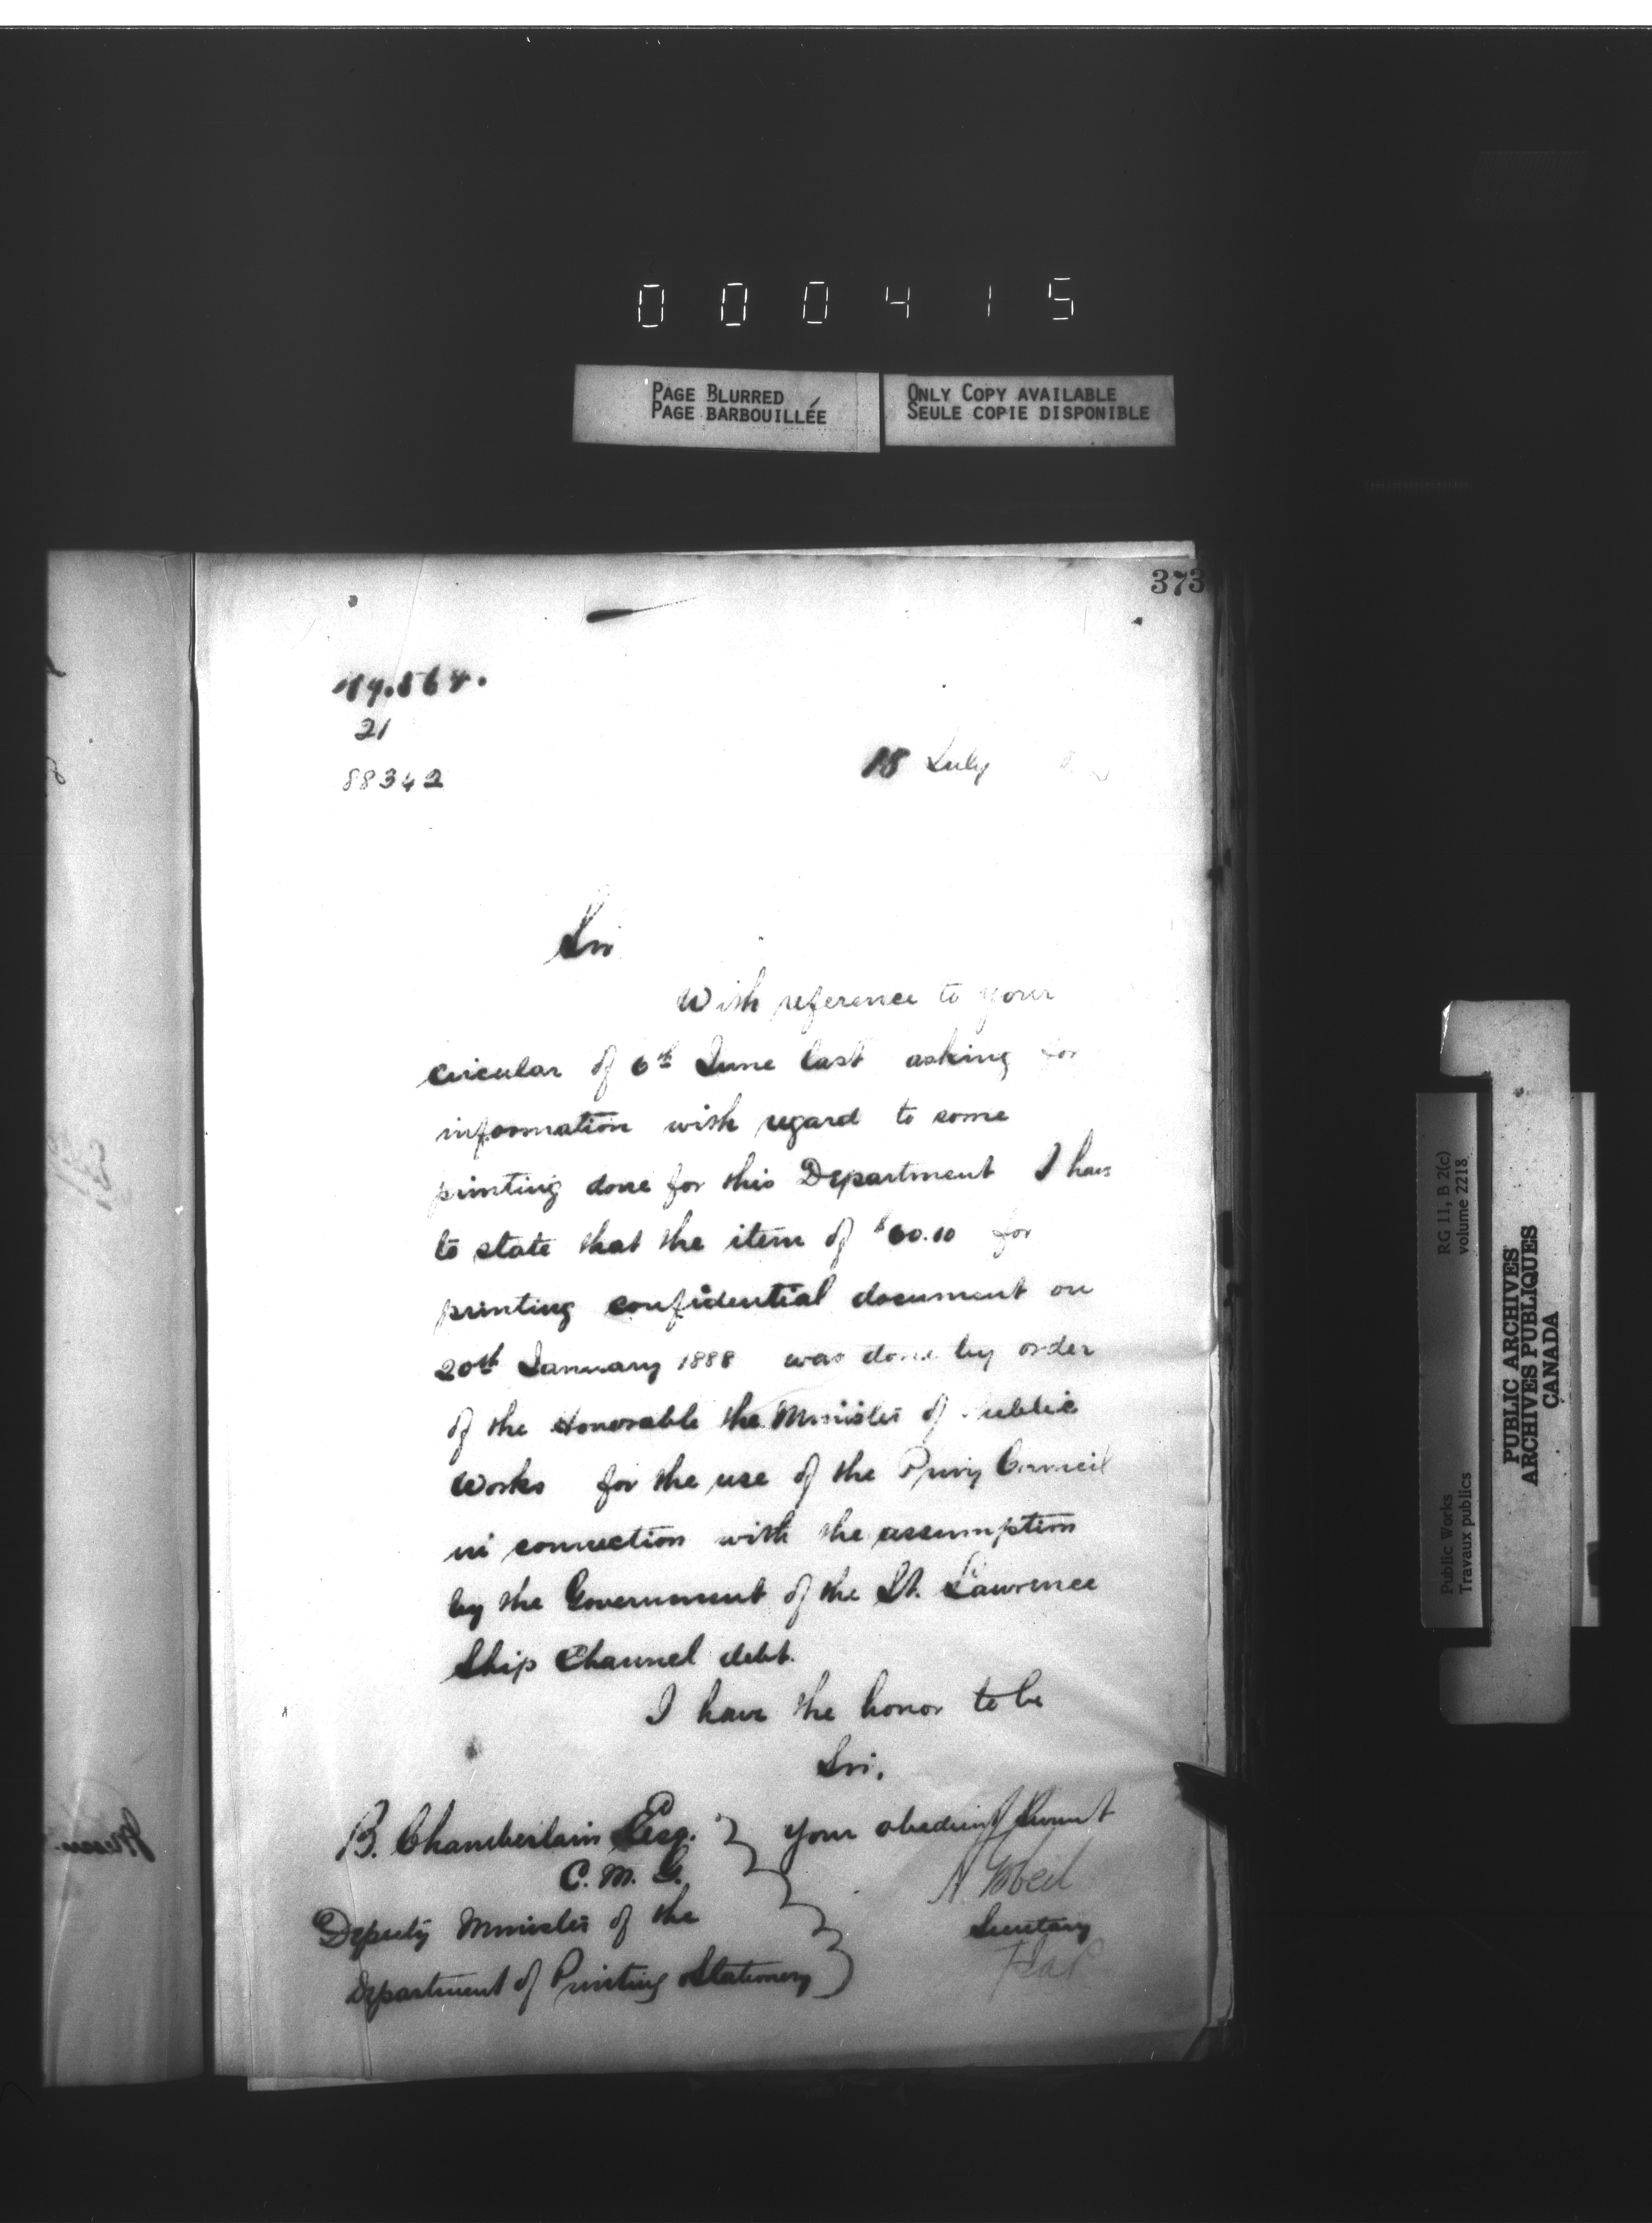 000415
PAGE BLURRED
PAGE BARBOUILLÉE
ONLY COPY AVAILABLE
SEULE COPIE DISPONIBLE
373
21
88342
18 July
Sir
With reference to your
circular of 6th June last asking for
information with regard to some
printing done for this Department I have
to state that the item of $60.10 for
printing confidential document on
20th January 1888 was done by order
of the Honorable the Minister of Public
Works for the use of the Privy Council
in connection with the assumption
by the Government of the St. Lawrence
Ship Channel debt.
I have the honor to be
Sir,
Your obedient Servant
A Gobeil
Secretary
B. Chamberlain Esq.
C. M. G.
Deputy Minister of the
Department of Printing & Stationery
RG 11, B 2(c)
volume 2218
Public Works
Travaux publics
PUBLIC ARCHIVES
ARCHIVES PUBLIQUES
CANADA